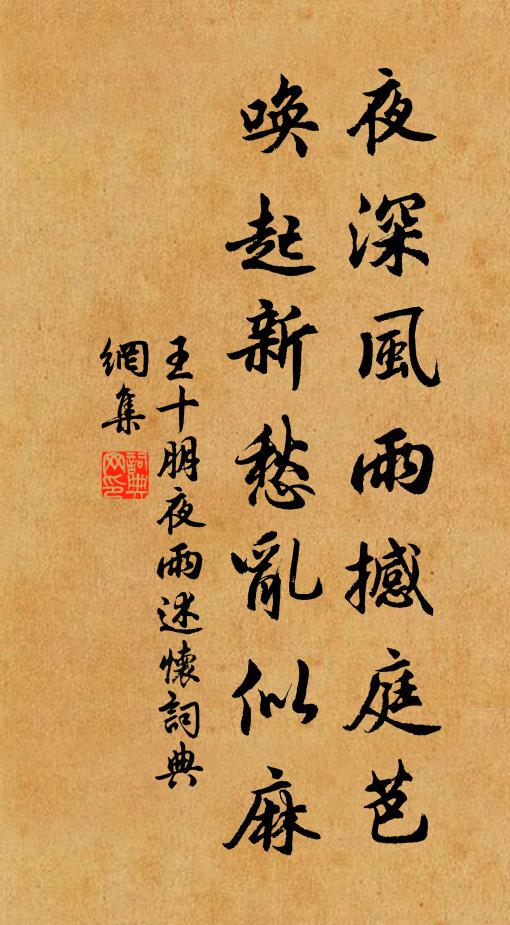 夜深風雨撼庭芭
喚起新愁亂似麻
王十朋夜雨述懷詞典
網集
詞典网印